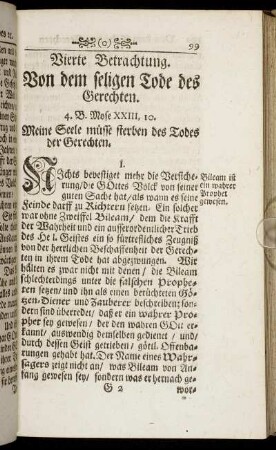 (o) 99
Vierte Betrachtung.
Von dem seligen Tode des
Gerechten.
4. B. Mose XXIII, 10.
Meine Seele müsse sterben des Todes
der Gerechten.
I.
NIchts bevestiget mehr die Versiche-
rung/die GOttes Volck von seiner
guten Sache hat/als wann es seine
Feinde darff zu Richtern setzen. Ein solcher
war ohne Zweiffel Bileam/ dem die Krafft
der Wahrheit und ein ausserordentlicher Trieb
des H. Geistes ein so fürtreflliches Zeugniß
von der herrlichen Beschaffenheit der Gerech-
ten in ihrem Tode hat abgezwungen. Wir
hälten es zwar nicht mit denen/ die Bileam
schlechterdings unter die falschen Prophe-
ten setzen/und ihn als einen berüchteten Gö-
tzen-Diener und Zauberer beschreiben; son-
dern sind überredet/ daß er ein wahrer Pro-
phet sey gewesen/ der den wahren GOtt er-
kännt/ auswendig demselben gedienet / und/
durch dessen Geist getrieben/ göttl. Offenba-
rungen gehabt hat. Der Name eines Wahr-
sagers zeigt nicht an/ was Bileam von An-
fang gewesen sey/ sondern was er hernach ge-
G 2 wor-
Bileam ist
ein wahrer
Prophet
gewesen.